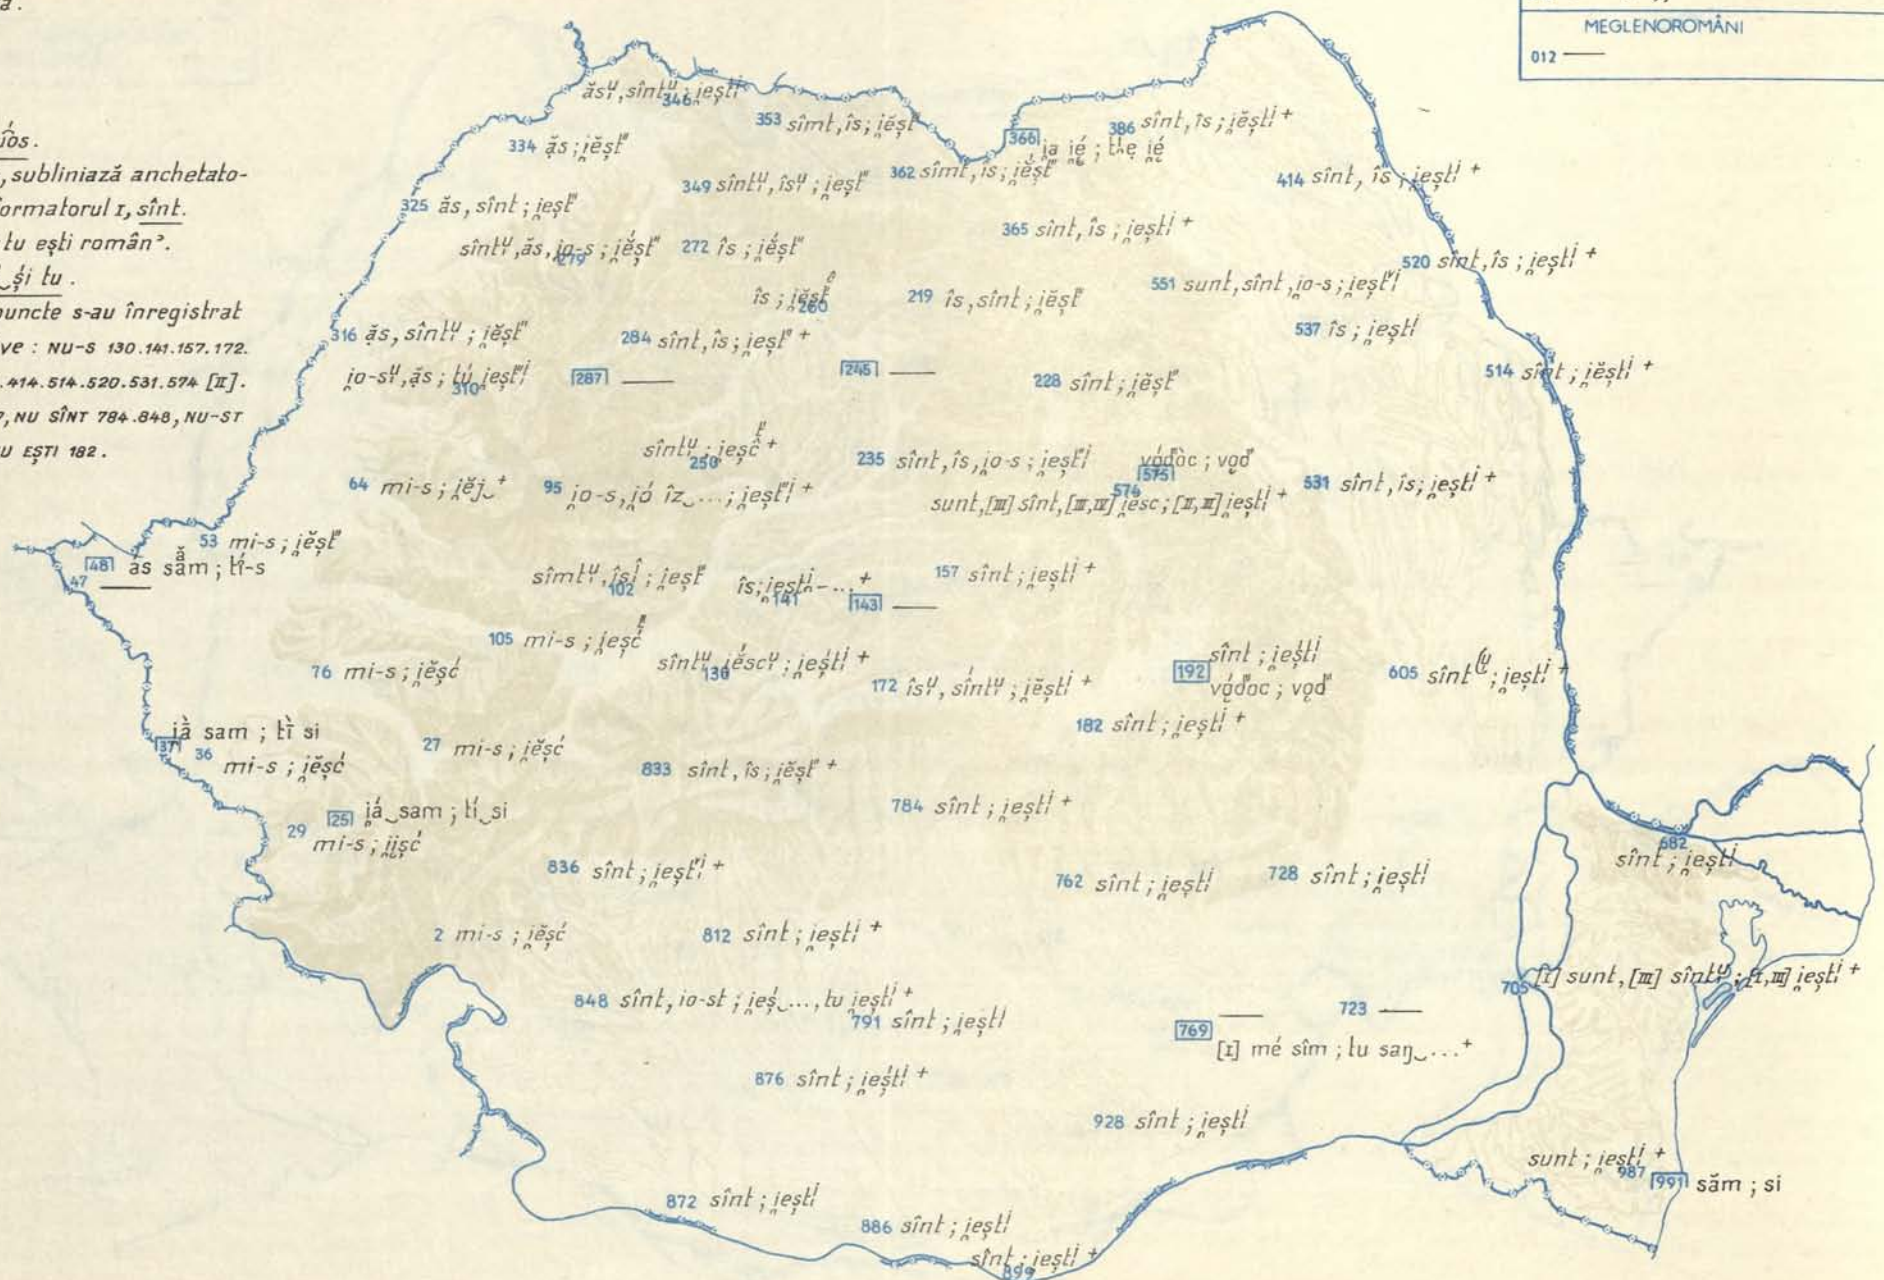 a.
MEGLENOROMÂNI
012 —
îos.
, subliniază anchetato-
formatorul I, sînt.
tu ești român’.
și tu.
puncte s-au înregistrat
ve : NU-S 130.141.157.172.
.414.514.520.531.574 [II].
7, NU SÎNT 784.848, NU-ST
U EȘTI 182.
346 ăsᵘ, sîntᵘ ; i̯ești
353 simt, îs ; i̯ĕșt'
334 ăs ; i̯ĕșt'
366 i̯a i̯é ; the i̯é
386 sînt, îs ; i̯ĕști +
349 sîntᵘ, îsᵘ ; i̯ĕșt'
362 simt, îs ; i̯ĕșt'
414 sînt, îs ; i̯ești +
325 ăs, sînt ; i̯ĕșt'
365 sînt, îs ; i̯ești +
279 sîntᵘ, ăs, i̯o-s ; i̯ĕșt'
272 îs ; i̯ĕșt'
520 sînt, îs ; i̯ești +
260 îs ; i̯ĕșt'
219 îs, sînt ; i̯ĕșt'
551 sunt, sînt, i̯o-s ; i̯ești
537 îs ; i̯ești
316 ăs, sîntᵘ ; i̯ĕșt'
284 sînt, îs ; i̯ĕșt' +
310 i̯o-sᵘ, ăs ; tu i̯ești
287 —
245 —
228 sînt ; i̯ĕșt'
514 sînt ; i̯ĕști +
250 sîntᵘ ; i̯eșĉ +
235 sînt, îs, i̯o-s ; i̯ești
575 vód'òc ; vod'
64 mi-s ; i̯ĕj‿ +
95 i̯o-s, i̯ó îz‿... ; i̯ești +
574 sunt, [III] sînt, [III, IV] i̯esc ; [II, III] i̯ești +
531 sînt, îs ; i̯ești +
53 mi-s ; i̯ĕșt'
48 ás săm ; tí-s
47 —
102 simtᵘ, îsî ; i̯ĕșt'
141 îs ; i̯ești-... +
143 —
157 sînt ; i̯ești +
105 mi-s ; i̯ĕșć
130 sîntᵘ, i̯ĕscᵘ ; i̯ești +
76 mi-s ; i̯ĕșć
172 îsᵘ, sîntᵘ ; i̯ĕști +
192 sînt ; i̯ești
vód'oc ; vod'
605 sînt⁽ᵘ⁾ ; i̯ești +
182 sînt ; i̯ești +
37 i̯ȁ sam ; tȉ si
36 mi-s ; i̯ĕșć
27 mi-s ; i̯ĕșć
833 sînt, îs ; i̯ĕșt' +
784 sînt ; i̯ești +
25 i̯á‿sam ; tí‿si
29 mi-s ; i̯ișć
682 sînt ; i̯ești
836 sînt ; i̯ești +
762 sînt ; i̯ești
728 sînt ; i̯ești
2 mi-s ; i̯ĕșć
812 sînt ; i̯ești +
705 [I] sunt, [III] sîntᵘ ; [I, III] i̯ești +
848 sînt, io-st ; i̯eș‿..., tu i̯ești +
791 sînt ; i̯ești
769 —
[I] mé sîm ; tu saŋ‿... +
723 —
876 sînt ; i̯ești +
928 sînt ; i̯ești
987 sunt ; i̯ești +
991 săm ; si
872 sînt ; i̯ești
886 sînt ; i̯ești
899 sînt ; i̯ești +